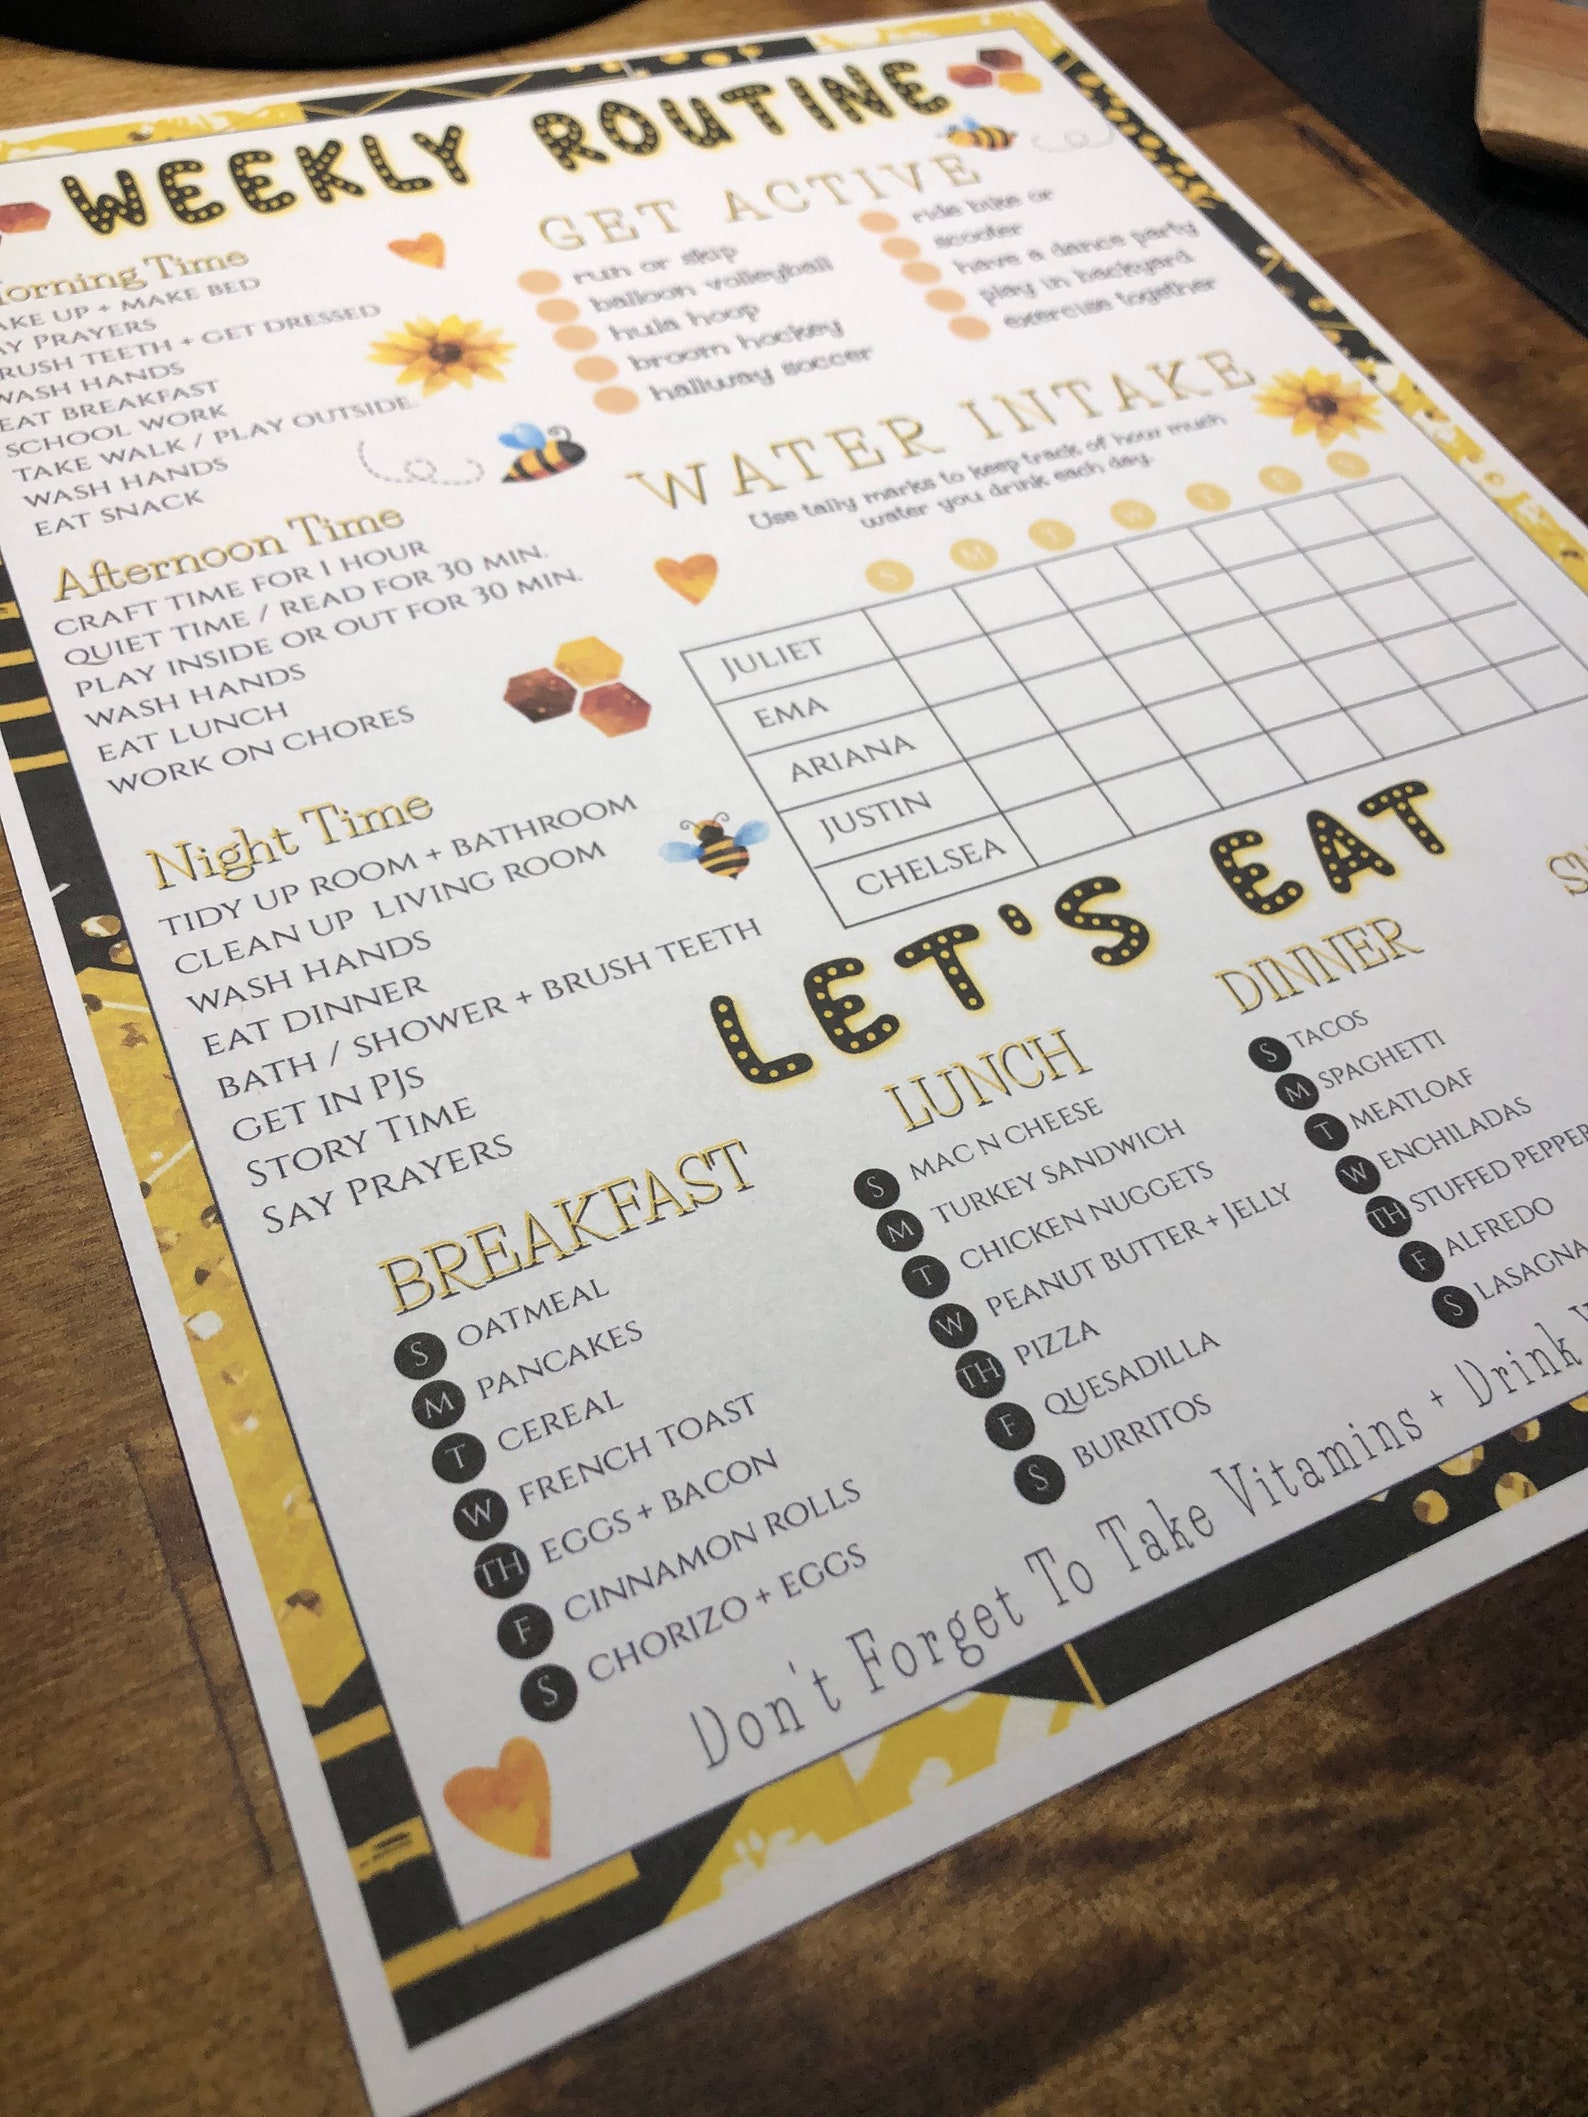 WEEKLY ROUTINE
Time
UP + MAKE BED
PRAYERS
TEETH + GET DRESSED
HANDS
EAT BREAKFAST
SCHOOL WORK
TAKE WALK / PLAY OUTSIDE
WASH HANDS
EAT SNACK
Afternoon Time
CRAFT TIME FOR 1 HOUR
QUIET TIME / READ FOR 30 MIN.
PLAY INSIDE OR OUT FOR 30 MIN.
WASH HANDS
EAT LUNCH
WORK ON CHORES
Night Time
TIDY UP ROOM + BATHROOM
CLEAN UP LIVING ROOM
WASH HANDS
EAT DINNER
BATH / SHOWER + BRUSH TEETH
GET IN PJS
STORY TIME
SAY PRAYERS
GET ACTIVE
run or skip
balloon volleyball
hula hoop
broom hockey
hallway soccer
ride bike or
scooter
have a dance party
play in backyard
exercise together
WATER INTAKE
Use tally marks to keep track of how much
water you drink each day.
S M T W T F S
JULIET
EMA
ARIANA
JUSTIN
CHELSEA
LET'S EAT
BREAKFAST
S OATMEAL
M PANCAKES
T CEREAL
W FRENCH TOAST
TH EGGS + BACON
F CINNAMON ROLLS
S CHORIZO + EGGS
LUNCH
S MAC N CHEESE
M TURKEY SANDWICH
T CHICKEN NUGGETS
W PEANUT BUTTER + JELLY
TH PIZZA
F QUESADILLA
S BURRITOS
DINNER
S TACOS
M SPAGHETTI
T MEATLOAF
W ENCHILADAS
TH STUFFED PEPPER
F ALFREDO
S LASAGNA
Don't Forget To Take Vitamins + Drink